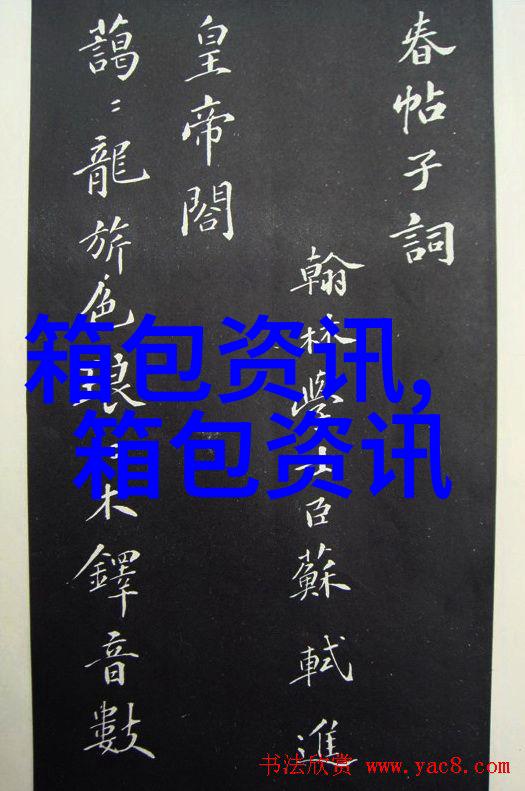 春帖子詞
翰林學士臣蘇軾進
皇帝閣
藹〻龍旂色琅〻木鐸音數
箱包资讯,
箱包资讯
书法欣赏 www.yac8.com